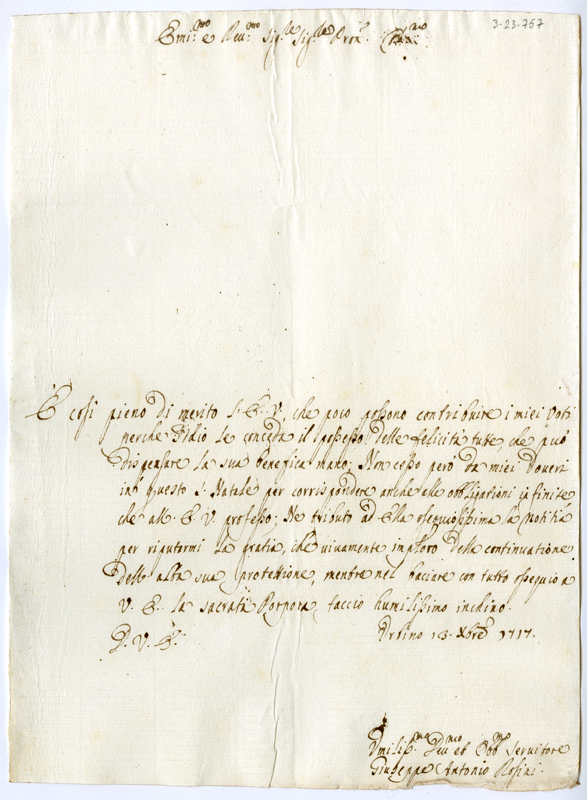 3-23-757
Emi:mo e Reu:mo Sig:re Sig:re Pron:
È così pieno di merito l'E. V. che poco possono contribuire i miei voti
perche Iddio le conceda il possesso delle felicità tute, che può
dispensare la sua benefica mano; Non cesso però da miei doueri
in questo S. Natale per corrispondere anche alle obbligationi infinite
che all' E. V. professo; Ne tributo ad Ella ossequiosissima la notitia
per riputarmi la gratia, che viuamente imploro della continuatione
dell' alta sua protettione, mentre nel baciare con tutto ossequio a
V. E. la sacrata Porpora, faccio humilissimo inchino.
D. V. E. Urbino 13. Xbre 1717.
Vmiliss:mo Deu:mo et Obb:mo Seruitore
Giuseppe Antonio Rosini.